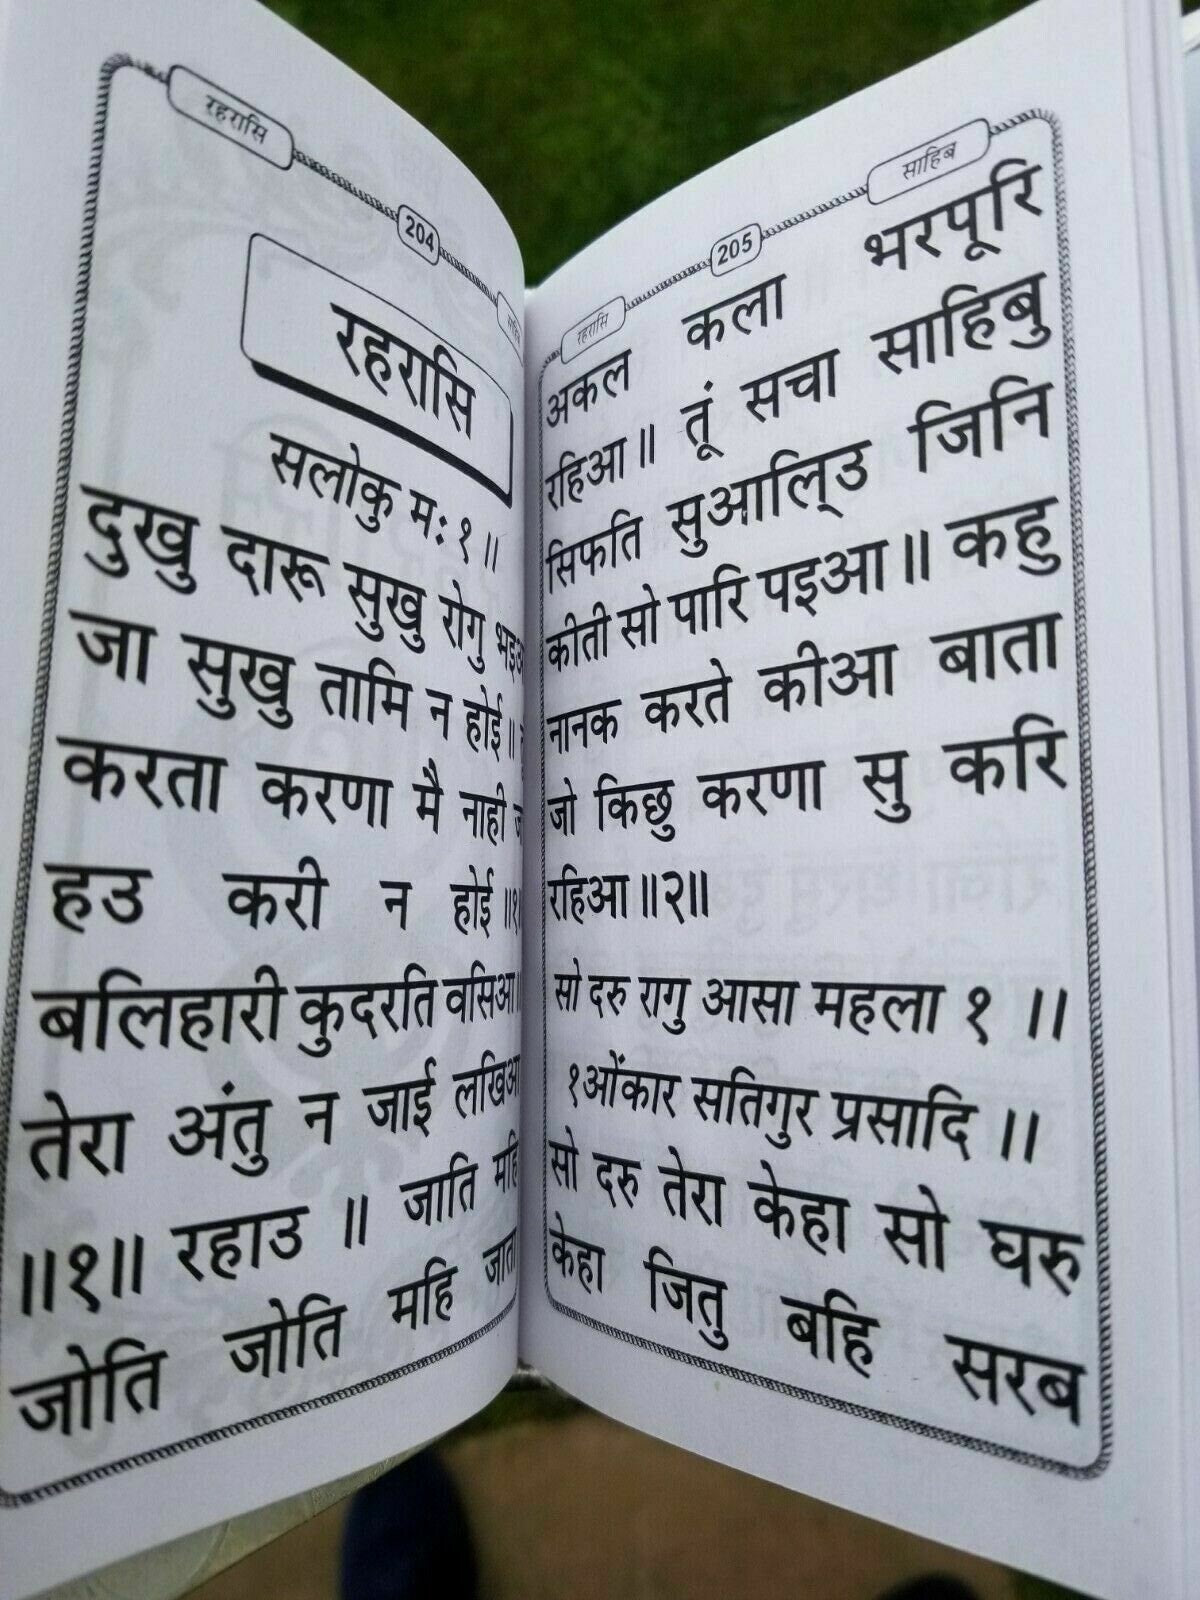 रहरासि
204
रहरासि
सलोकु म: १ ॥
दुखु दारू सुखु रोगु
जा सुखु तामि न होई ॥
करता करणा मै नाही
हउ करी न होई ॥१॥
बलिहारी कुदरति वसिआ
तेरा अंतु न जाई लखिआ
॥१॥ रहाउ ॥ जाति महि
जोति जोति महि जाता
रहरासि
205
साहिब
अकल कला भरपूरि
रहिआ ॥ तूं सचा साहिबु
सिफति सुआलि्उ जिनि
कीती सो पारि पइआ ॥ कहु
नानक करते कीआ बाता
जो किछु करणा सु करि
रहिआ ॥२॥
सो दरु रागु आसा महला १ ।।
१ओंकार सतिगुर प्रसादि ।।
सो दरु तेरा केहा सो घरु
केहा जितु बहि सरब